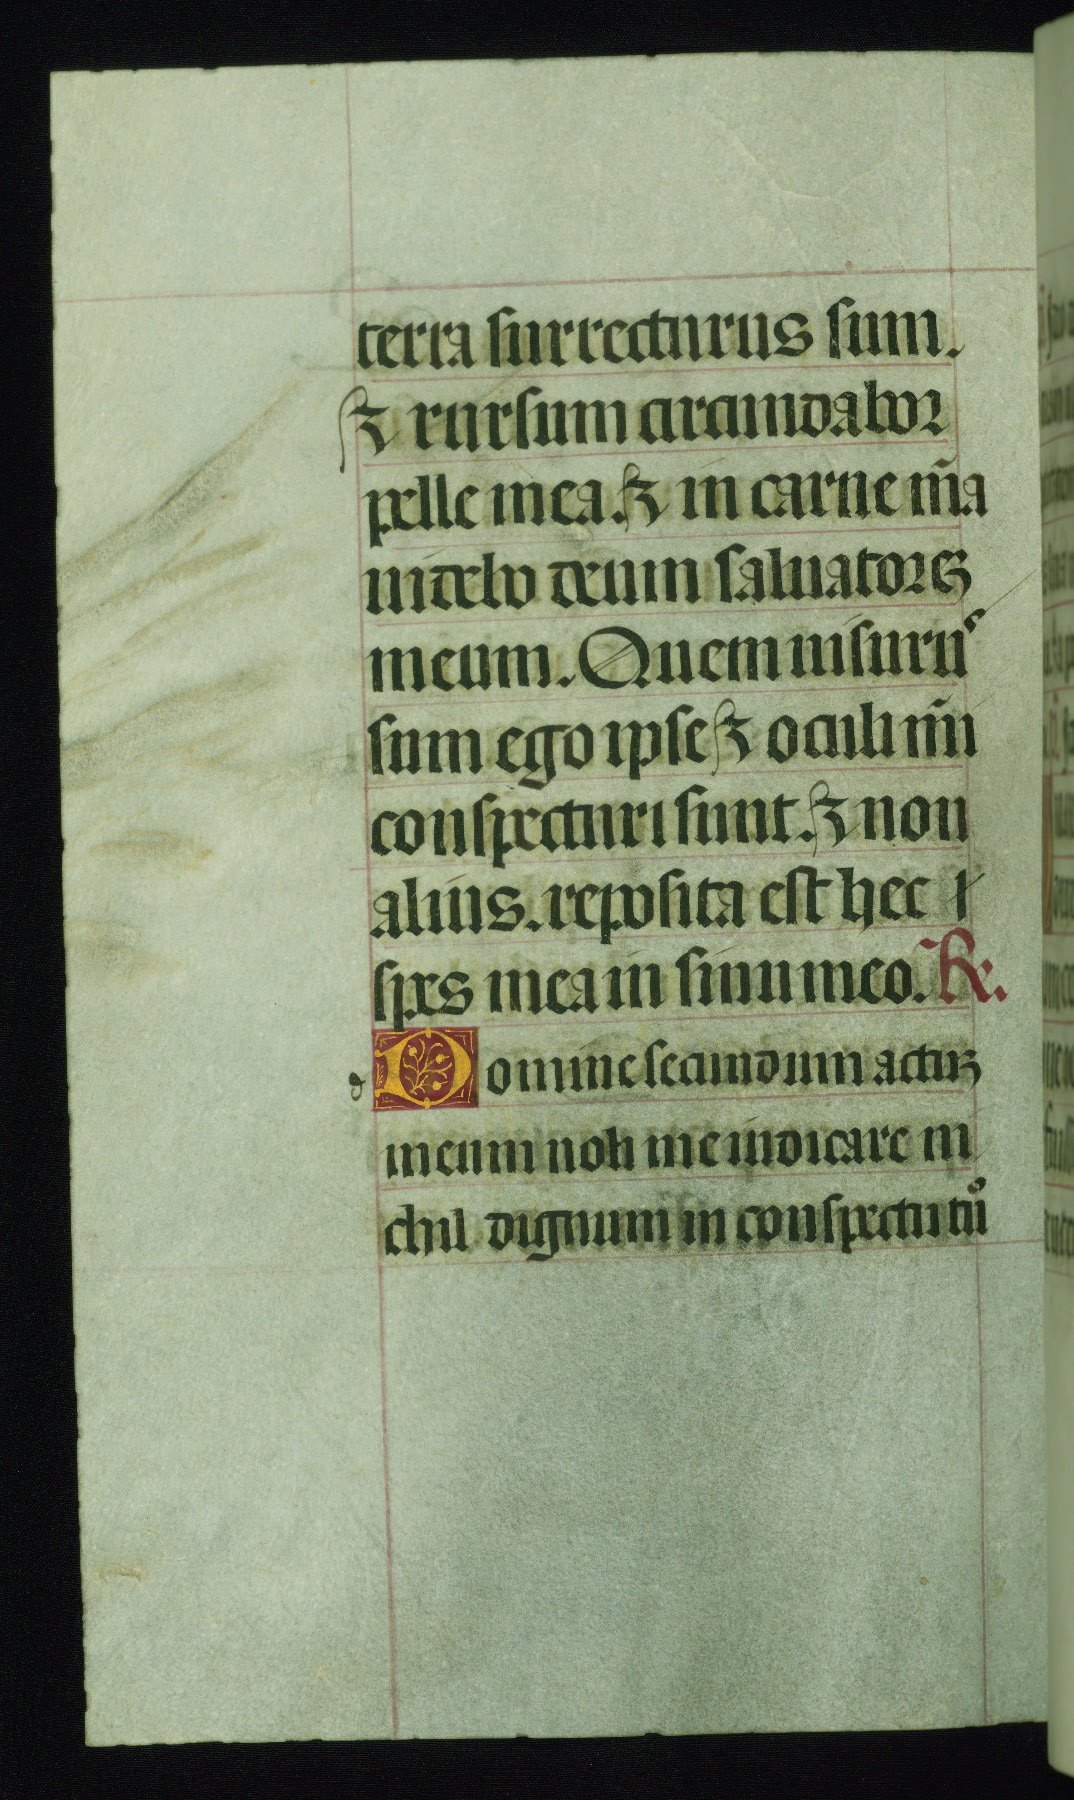 terra surrecturus sum.
⁊ rursum circumdabor
pelle mea. ⁊ in carne m̄a
uidebo deum saluatorē
meum. Quem uisurus
sum ego ipse ⁊ oculi m̄i
conspecturi sunt. ⁊ non
alius. reposita est hec
spes mea in sinu meo. R̃.
d Domine secundum actū
meum noli me iudicare ni
chil dignum in conspectu tuo